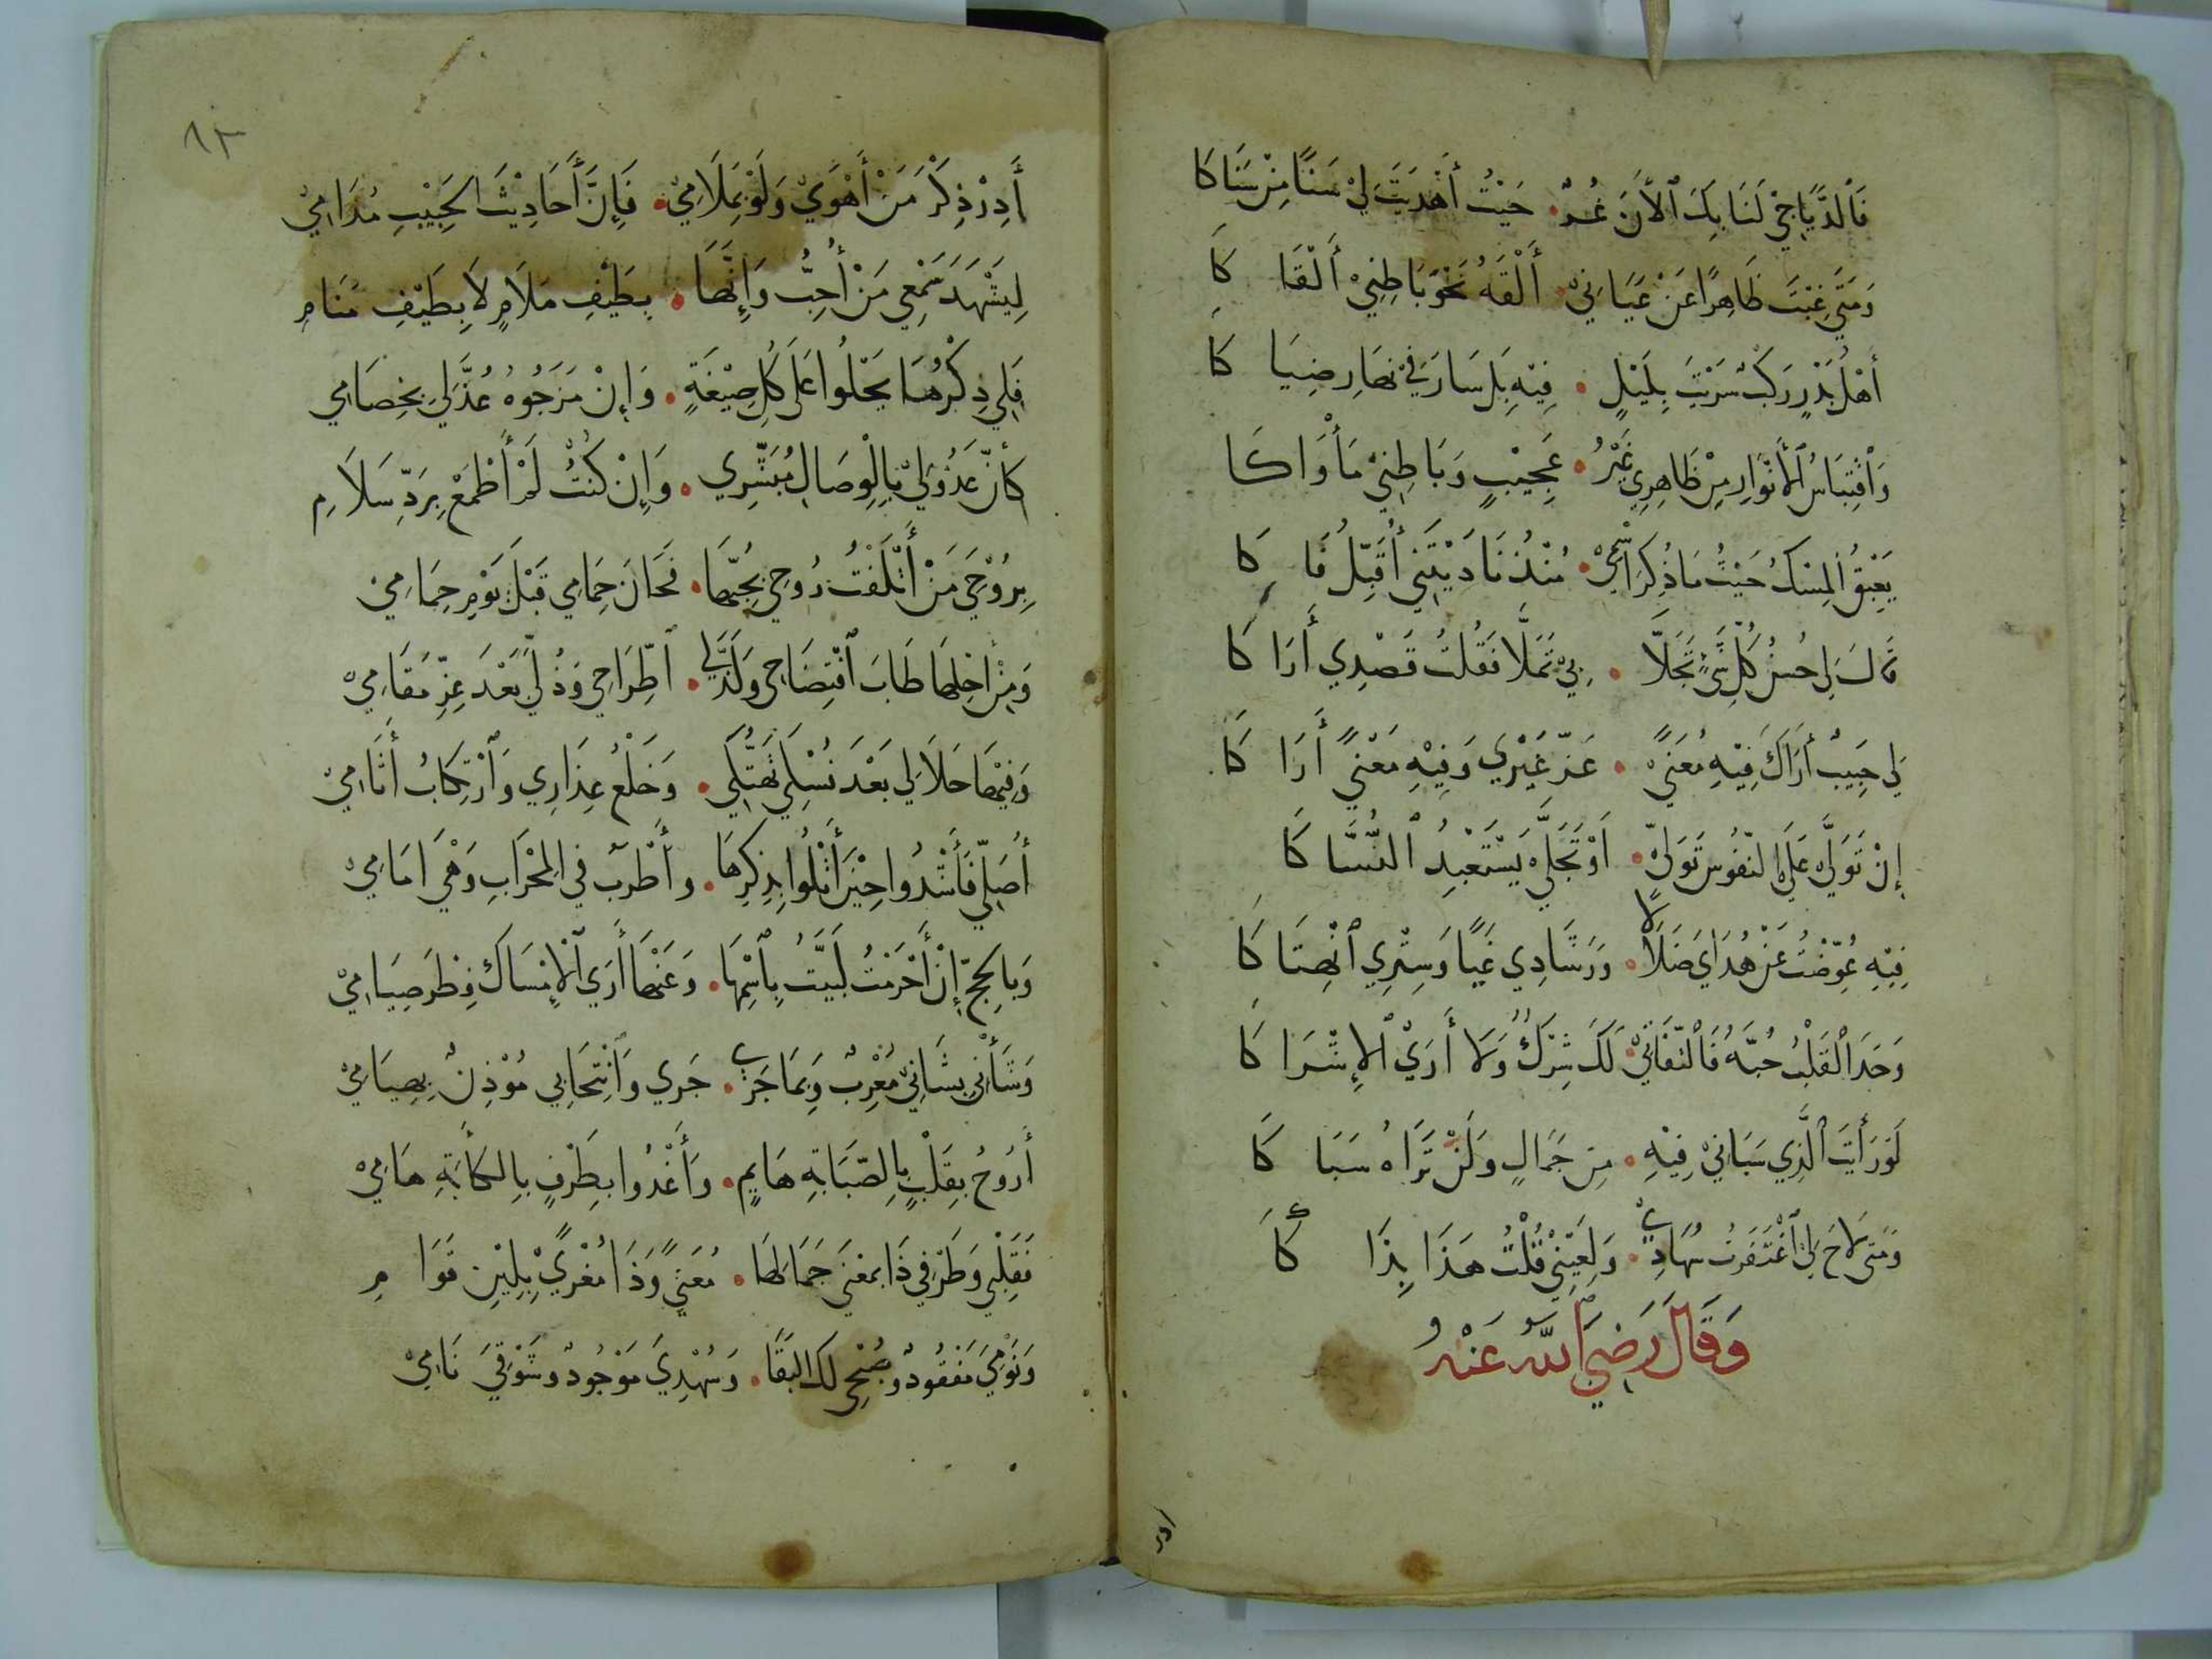 فَالدَّيَاجِيْ لَنَا بِكَ ٱلْآنَ غُرٌّ • حَيْثُ أَهْدَيْتَ لِيْ سَنًا مِنْ سَنَاكَا
وَمَتَى غِبْتَ ظَاهِرًا عَنْ عَيَانِيْ • أَلْقَهُ نَحْوَ بَاطِنِيْ أَلْقَاكَا
أَهْلُ بَدْرٍ رَكْبٌ سَرَيْتَ بِلَيْلٍ • فِيْهِ بَلْ سَارَ فِيْ نَهَارِ ضِيَاكَا
وَٱقْتِبَاسُ ٱلْأَنْوَارِ مِنْ ظَاهِرِيْ غَيْرُ • عَجِيْبٍ وَبَاطِنِيْ مَأْوَاكَا
يَعْبَقُ ٱلْمِسْكُ حَيْثُ مَا ذُكِرَ ٱسْمِيْ • مُنْذُ نَادَيْتَنِيْ أُقَبِّلُ فَاكَا
قَالَ لِي حُسْنُ كُلِّ شَيْءٍ تَجَلَّا • بِيْ تَمَلَّا فَقُلْتُ قَصْدِي أَرَاكَا
لِي حَبِيبٌ أَرَاكَ فِيْهِ مُعَنًّى • غَرَّ غَيْرِي وَفِيْهِ مَعْنًى أَرَاكَا
إِنْ تَوَلَّى عَلَى ٱلنُّفُوسِ تَوَلَّى • أَوْ تَجَلَّى يَسْتَعْبِدُ ٱلنُّسَّاكَا
فِيْهِ عُوِّضْتُ عَنْ هُدَايَ ضَلَالًا • وَرَشَادِي غَيًّا وَسِتْرِي ٱنْهِتَاكَا
وَحَدَ ٱلْقَلْبُ حُبَّهُ فَٱلْتِفَاتِيْ • لَكَ شِرْكٌ وَلَا أَرَى ٱلْإِشْرَاكَا
لَوْ رَأَيْتَ ٱلَّذِي سَبَانِيْ فِيْهِ • مِنْ جَمَالٍ وَلَنْ تَرَاهُ سَبَاكَا
وَمَتَى لَاحَ لِي ٱغْتَفَرْتُ سُهَادِي • وَلِعَيْنِيْ قُلْتُ هَذَا بِذَاكَا
وَقَالَ رَضِيَ ٱللّٰهُ عَنْهُ
ادر
٨٣
أَدِرْ ذِكْرَ مَنْ أَهْوَى وَلَوْ بِمَلَامِيْ • فَإِنَّ أَحَادِيْثَ الْحَبِيْبِ مُدَامِيْ
لِيَشْهَدَ سَمْعِي مَنْ أُحِبُّ وَإِنَّهَا • بِطَيْفِ مَلَامٍ لَا بِطَيْفِ مَنَامِ
فَلِي ذِكْرُهَا يَحْلُوا عَلَى كُلِّ صِيْغَةٍ • وَإِنْ مَزَجُوهُ عُذَّلِي بِخِصَامِي
كَأَنَّ عَذُوْلِيْ بِالْوِصَالِ مُبَشِّرِي • وَإِنْ كُنْتُ لَمْ أَطْمَعْ بِرَدِّ سَلَامِ
بِرُوْحِيَ مَنْ أَتْلَفْتُ رُوحِي بِحُبِّهَا • فَحَانَ حِمَامِي قَبْلَ يَوْمِ حِمَامِيْ
وَمِنْ أَجْلِهَا طَابَ ٱفْتِضَاحِي وَلَذَّ لِي • ٱطِّرَاحِي وَذُلِّي بَعْدَ عِزِّ مَقَامِيْ
وَفِيْهَا حَلَا لِي بَعْدَ نُسْكِي تَهَتُّكِي • وَخَلْعُ عِذَارِي وَٱرْتِكَابُ أَثَامِيْ
أُصَلِّي فَأَشْدُوا حِيْنَ أَتْلُوا بِذِكْرِهَا • وأَطْرَبُ فِي الْمِحْرَابِ وَهْيَ امَامِيْ
وَبِالْحَجِّ إِنْ أَحْرَمْتُ لَبَّيْتُ بِٱسْمِهَا • وَعَنْهَا أَرَى ٱلْإِمْسَاكَ فِطْرَ صِيَامِيْ
وَشَأْنِي بِشَانِيْ مُعْرِبٌ وَبِمَا جَرَى • جَرَى وَٱنْتِحَابِي مُؤْذِنٌ بِهِيَامِيْ
أَرُوحُ بِقَلْبٍ بِالصَّبَابَةِ هَايِمٍ • وَأَغْدُوا بِطَرْفٍ بِالكَأبَةِ هَامِيْ
فَقَلْبِي وَطَرْفِي ذَا بِمَعْنَى جَمَالِهَا • مُعَنًّى وَذَا مُغْرًى بِلِيْنِ قَوَامِ
وَنَوْمِيَ مَفْقُودٌ وصُبْحِي لك البَقَا • وَسُهْدِيَ مَوْجُودٌ وشَوْقِيَ نَامِيْ